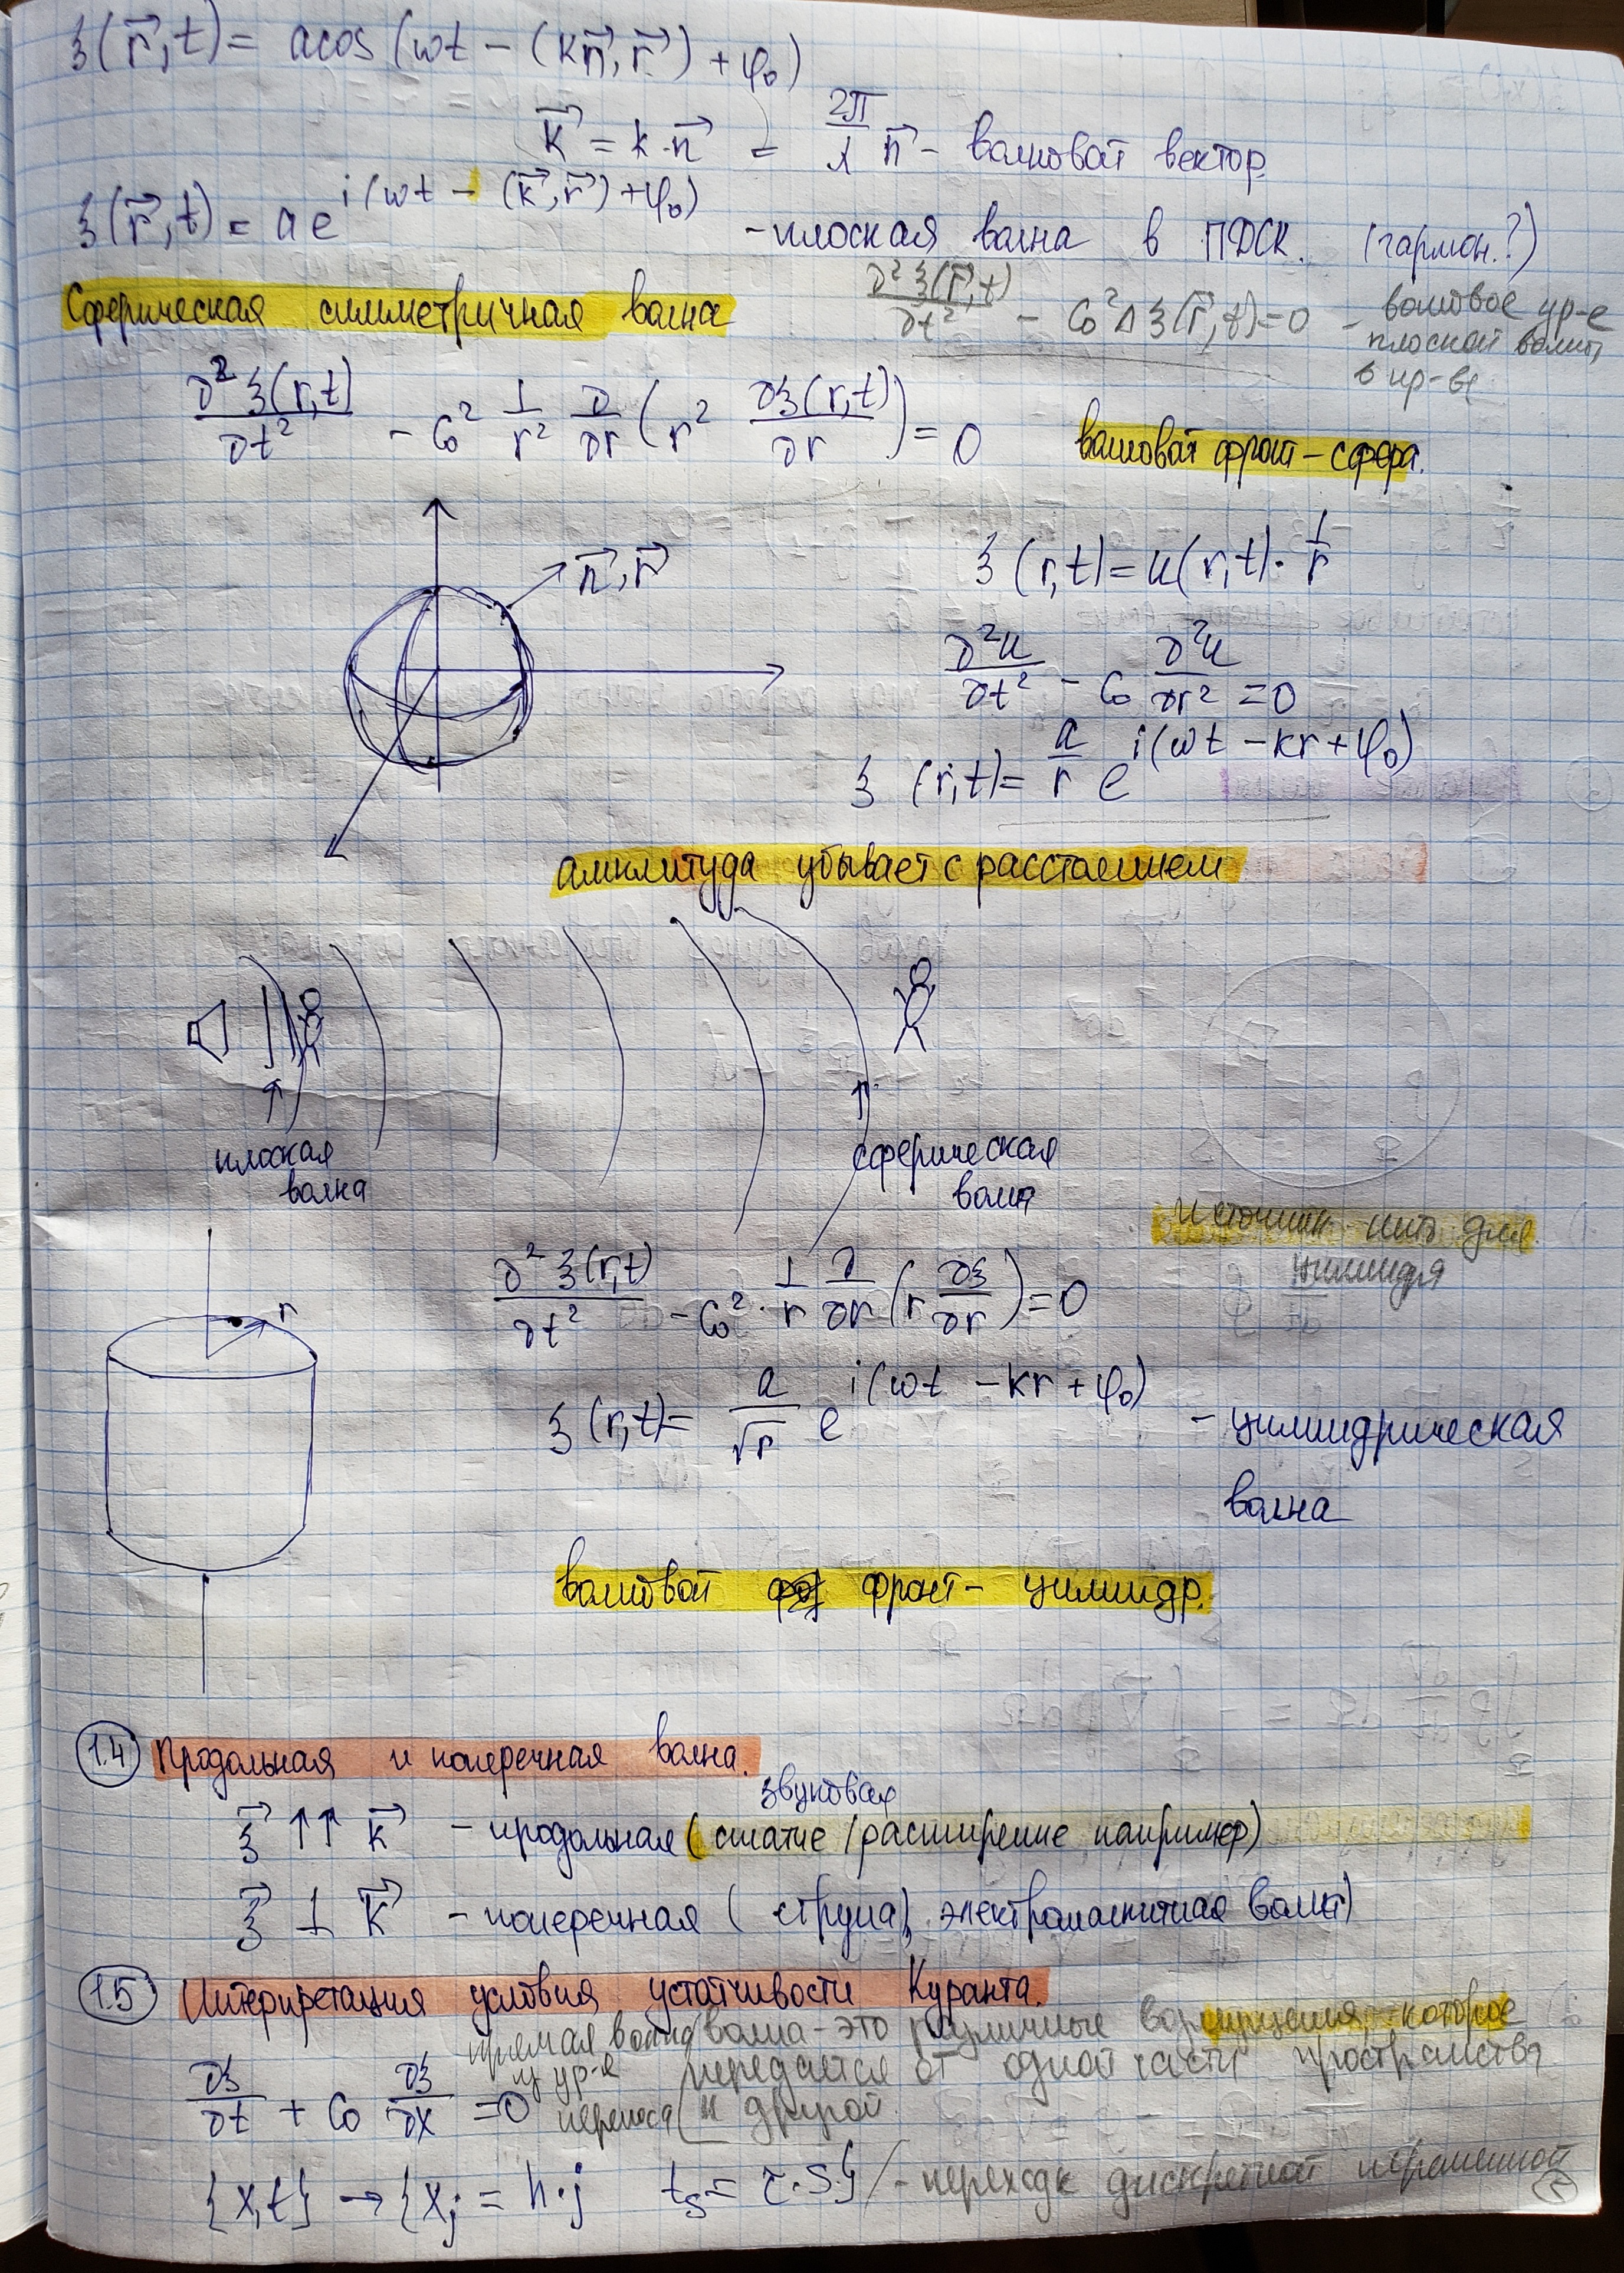 ξ(r⃗,t) = acos(ωt − (kn⃗,r⃗) + φ₀)
k⃗ = k·n⃗ = 2π/λ n⃗ − волновой вектор.
ξ(r⃗,t) = a e^{i(ωt − (k⃗,r⃗) + φ₀)} - плоская волна в ПДСК. (гармон.?)
Сферическая симметричная волна
∂²ξ(r⃗,t)/∂t² − C₀²Δξ(r⃗,t)=0 − волновое ур-е
плоской волны
в пр-ве
∂²ξ(r,t)/∂t² − C₀² 1/r² ∂/∂r (r² ∂ξ(r,t)/∂r) = 0
волновой фронт − сфера.
n⃗, r⃗
ξ(r,t) = u(r,t)· 1/r
∂²u/∂t² − C₀ ∂²u/∂r² = 0
ξ(r,t) = a/r e^{i(ωt − kr + φ₀)}
амплитуда убывает с расстоянием
плоская
волна
сферическая
волна
источник нить для
цилиндра
r
∂²ξ(r,t)/∂t² − C₀²· 1/r ∂/∂r (r ∂ξ/∂r) = 0
ξ(r,t) = a/√r e^{i(ωt − kr + φ₀)} − цилиндрическая
волна
волновой фронт − цилиндр.
1.4 Продольная и поперечная волна.
звуковая
ξ⃗ ↑↑ k⃗ − продольная (сжатие/расширение например)
ξ⃗ ⊥ k⃗ − поперечная (струна), электромагнитная волна)
1.5 Интерпретация условия устойчивости Куранта.
прямая волна
из ур-е
переноса
волна - это различные возмущения которое
передается от одной части пространства
к другой.
∂ξ/∂t + C₀ ∂ξ/∂x = 0
{x,t} → {xⱼ = h·j tₛ = τ·s} − переход к дискретной переменной